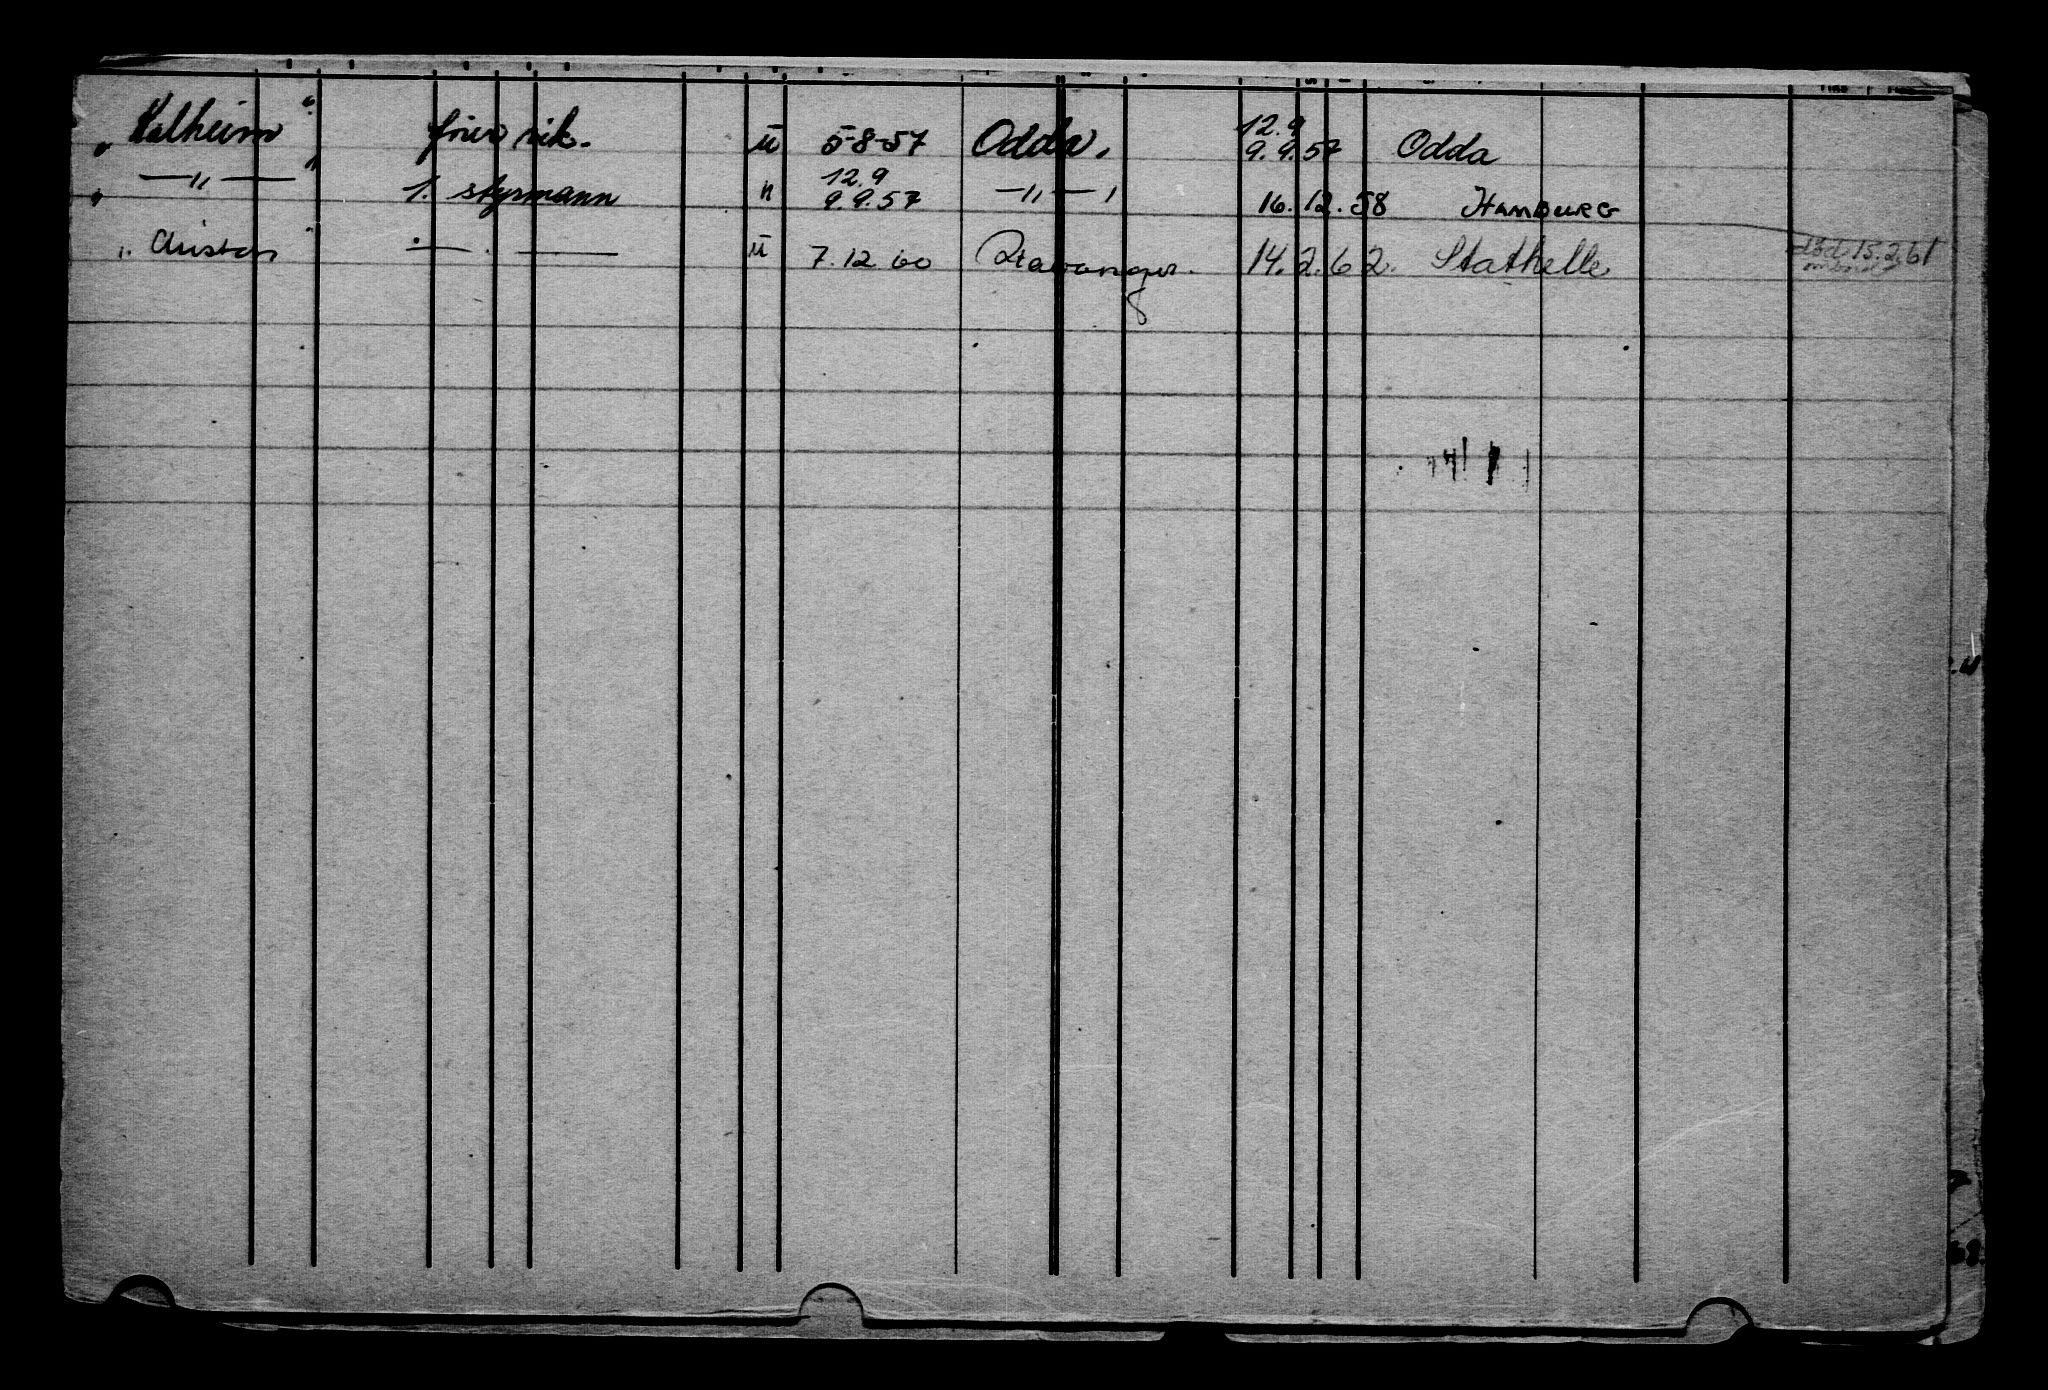 " Kalheim " 1ste sik. u 5-8-57 Odda. 12.9 9.9.57 Odda
" —"— " 1. styrmann " 12.9 9.9.57 —"— , 16.12.58 HAMBURG
" — . — u 7.12.60 Stavanger. 14.2.62. Stathelle 15.2.61